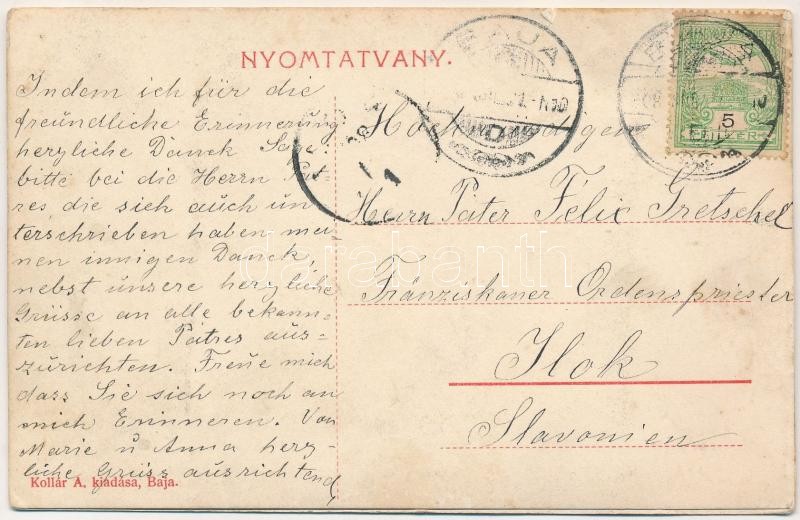 NYOMTATVANY.
BAJA
BAJA
5
Indem ich für die
freundliche Erinnerung
herzliche Danck
bitte bei die Herrn Pat-
res, die sich auch un
terschrieben haben mei
nen innigen Danck,
nebst unsere herzliche
Grüsse an alle bekann-
ten lieben Patres aus=
zürichten. Freüe mich
dass Sie sich noch an
mich Erinneren. Von
Marie u Anna herz-
liche Grüss ausrichtend
Hochwürdigen
Herrn Pater Felix Gretschel
Fránziskaner Ordenspriester
Ilok
Slavonien
Kollár A. kiadása, Baja.
darabanth